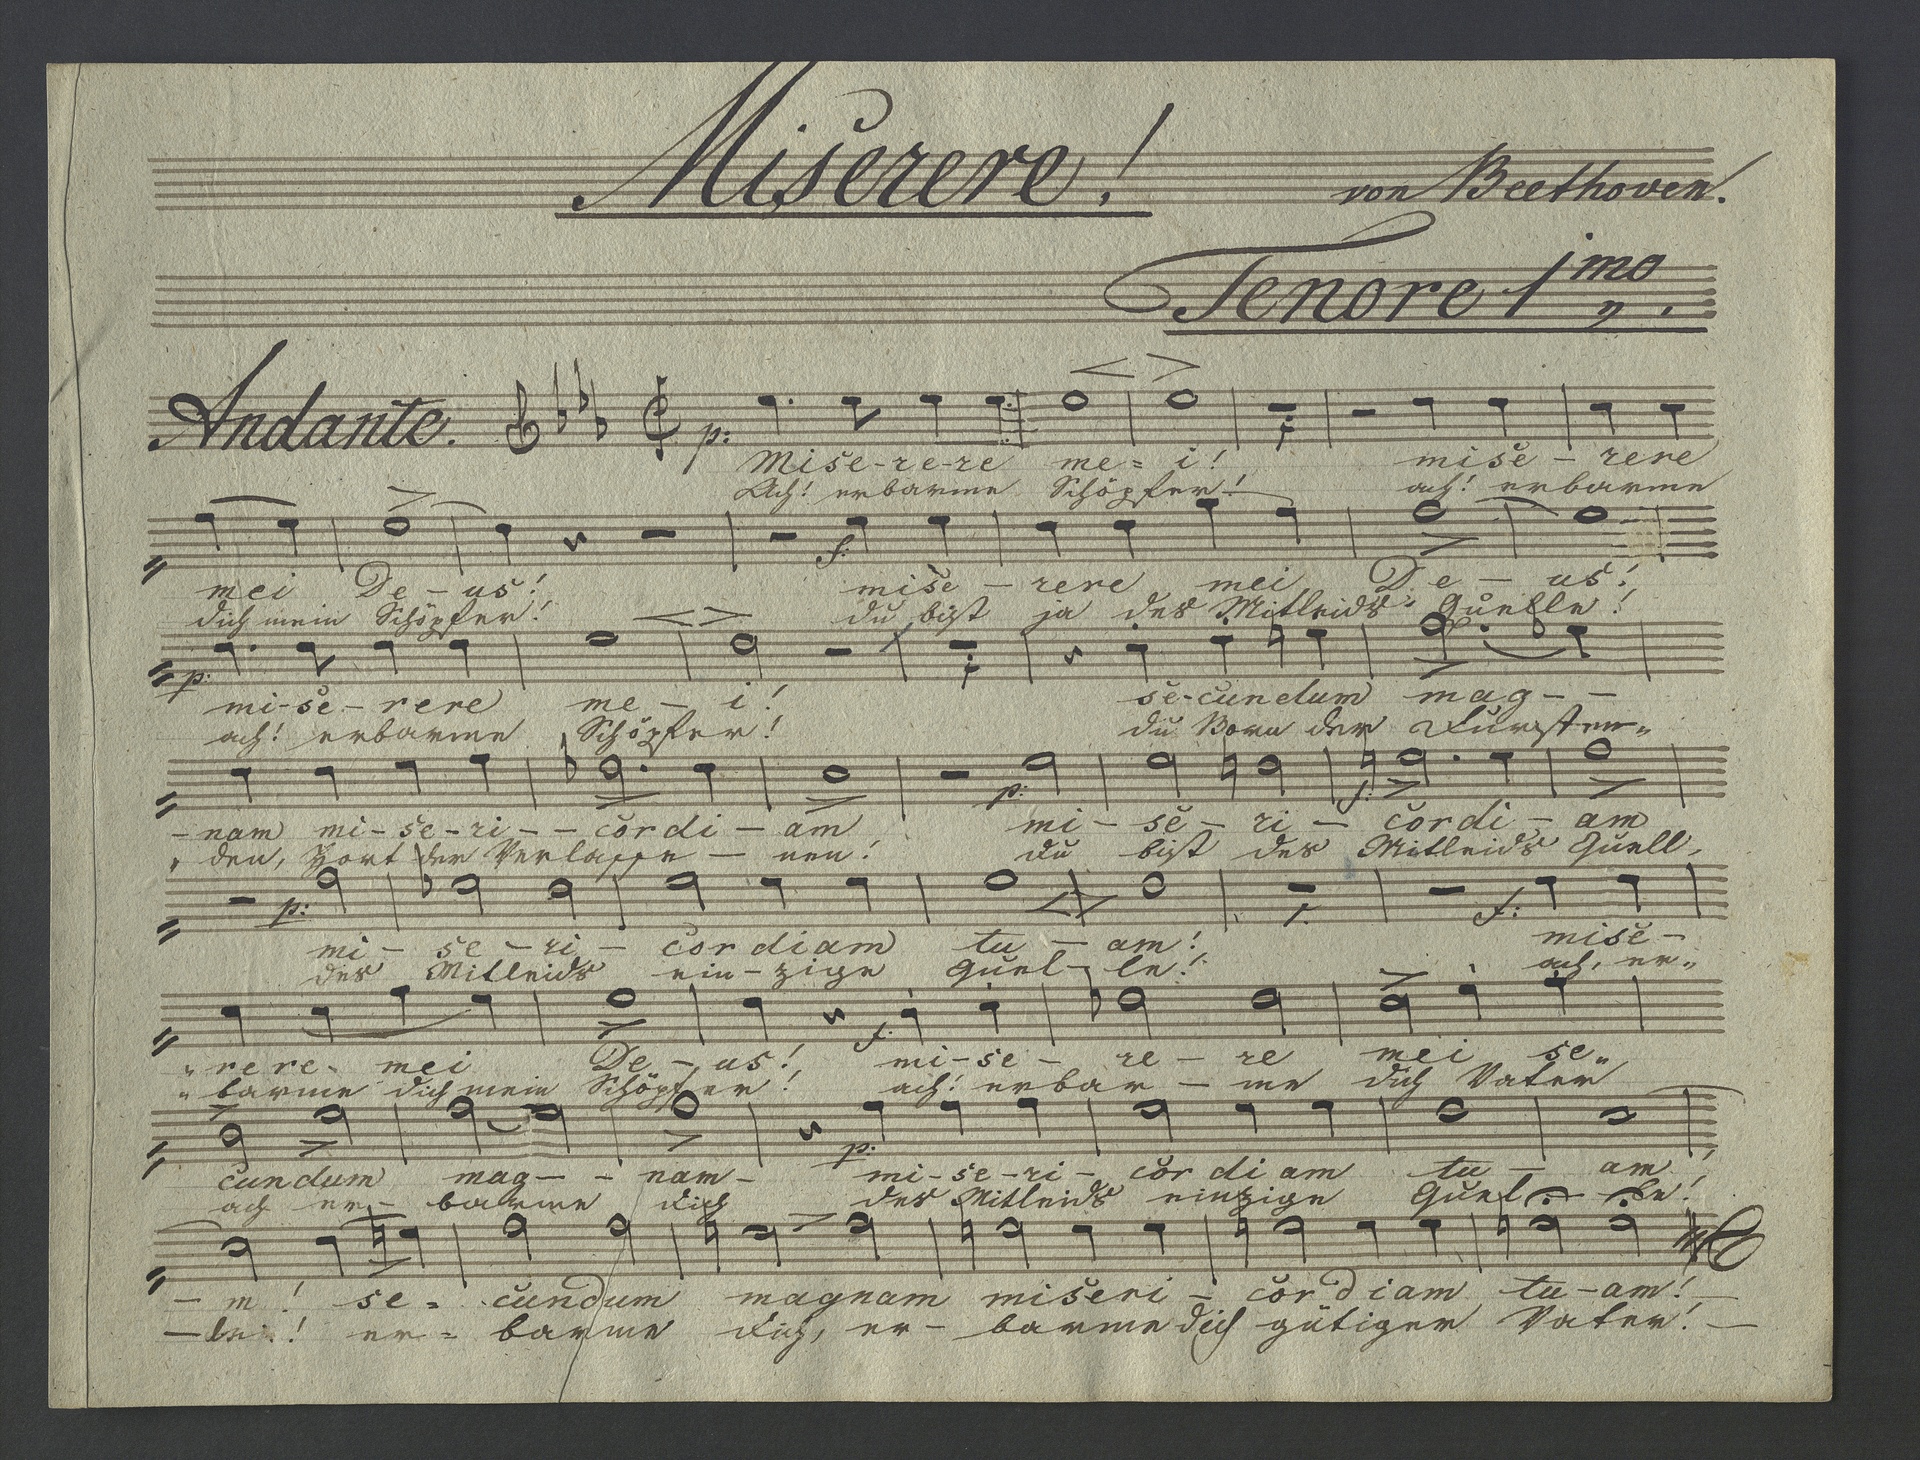 Miserere!
von Beethoven.
Tenore 1mo
Andante.
p:
Mise-re-re me= i! mise - rere
Ach! erbarme Schöpfer! ach! erbarme
f:
mei De-us! mise - rere mei De - us!
dich mein Schöpfer! du bist ja des Mitleids Quelle!
p:
mi-se-rere me - i! se-cundum mag- -
ach! erbarme Schöpfer! du Born der
p: f:
-nam mi-se-ri- - cordi - am mi - se - ri - cordi - am
den, Hort der Verlasse - nen! du bist des Mitleids Quell,
p: f:
mi - se - ri - cordiam tu - am! mise -
des Mitleids ein-zige Quel - le! ach, er„
f:
„rere- mei De - us! mi-se - re - re mei se„
„barme dich mein Schöpfer! ach! erbar - me dich Vater
p:
cundum mag- - nam- mi-se-ri- cordiam tu - am!
ach er- barme dich des Mitleids einzige Quel - le!
- m! se= cundum magnam miseri - cordiam tu-am! -
er= barme dich, er- barme dich gütiger Vater! -